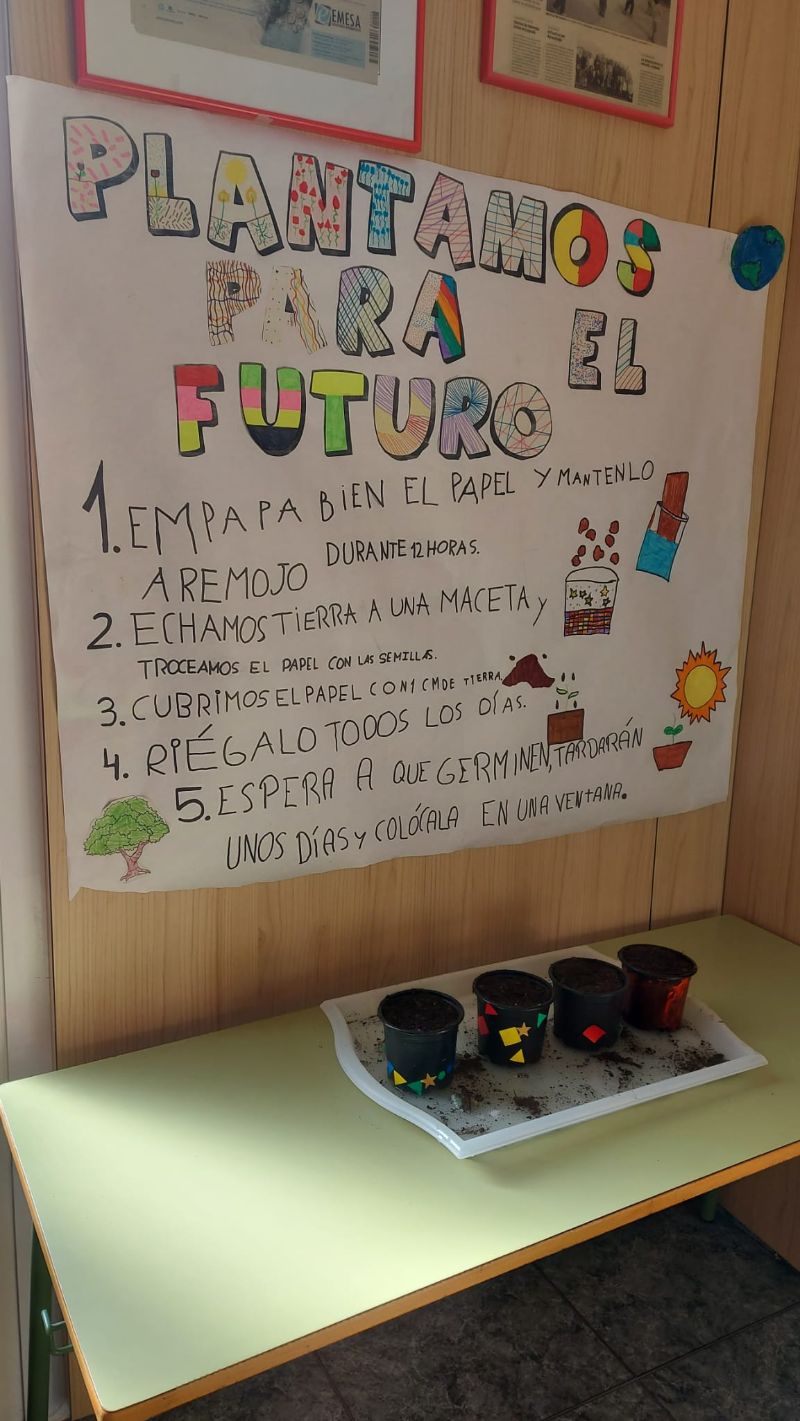 EMESA
PLANTAMOS
PARA EL
FUTURO
1. EMPAPA BIEN EL PAPEL Y MANTENLO
A REMOJO DURANTE 12 HORAS.
2. ECHAMOS TIERRA A UNA MACETA y
TROCEAMOS EL PAPEL CON LAS SEMILLAS.
3. CUBRIMOS EL PAPEL CON 1 CM DE TIERRA.
4. RIÉGALO TODOS LOS DÍAS.
5. ESPERA A QUE GERMINEN, TARDARÁN
UNOS DÍAS y COLÓCALA EN UNA VENTANA.